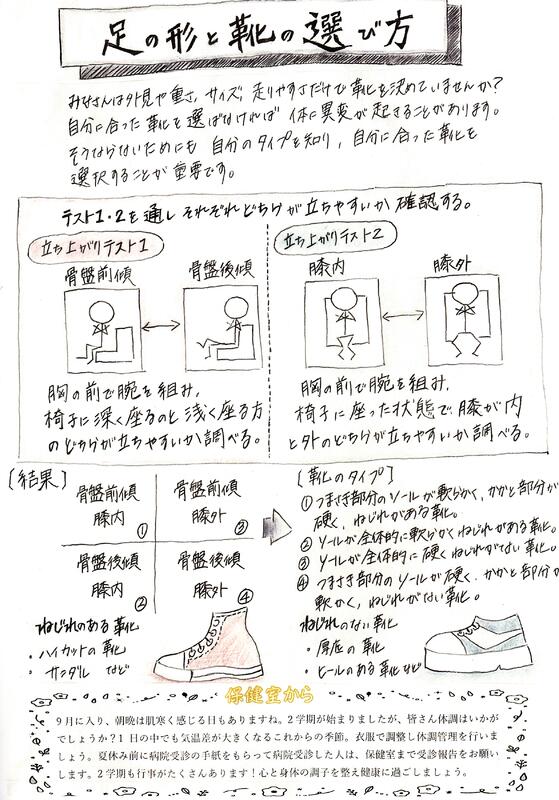 足の形と靴の選び方
みなさんは外見や重さ、サイズ、走りやすさだけで靴を決めていませんか?
自分に合った靴を選ばなければ 体に異変が起きることがあります。
そうならないためにも 自分のタイプを知り、自分に合った靴を
選択することが重要です。
テスト1・2を通し それぞれどちらが立ちやすいか 確認する。
立ち上がりテスト1
骨盤前傾
骨盤後傾
胸の前で腕を組み、
椅子に深く座るのと 浅く座る方
のどちらが立ちやすいか調べる。
立ち上がりテスト2
膝内
膝外
胸の前で腕を組み、
椅子に座った状態で、膝が内
と外のどちらが立ちやすいか調べる。
〔結果〕
骨盤前傾
膝内
①
骨盤前傾
膝外
③
骨盤後傾
膝内
②
骨盤後傾
膝外
④
〔靴のタイプ〕
①つまさき部分のソールが軟らかく、かかと部分が
硬く、ねじれがある靴。
②ソールが全体的に軟らかくねじれがある靴。
③ソールが全体的に硬くねじれがない靴。
④つまさき部分のソールが硬く、かかと部分が
軟かく、ねじれがない靴。
ねじれのある靴
・ハイカットの靴
・サンダル など
ねじれのない靴
・厚底の靴
・ヒールのある靴など
保健室から
9月に入り、朝晩は肌寒く感じる日もありますね。2学期が始まりましたが、皆さん体調はいかが
でしょうか?1日の中でも気温差が大きくなるこれからの季節。衣服で調整し体調管理を行いま
しょう。夏休み前に病院受診の手紙をもらって病院受診した人は、保健室まで受診報告をお願い
します。2学期も行事がたくさんあります!心と身体の調子を整え健康に過ごしましょう。